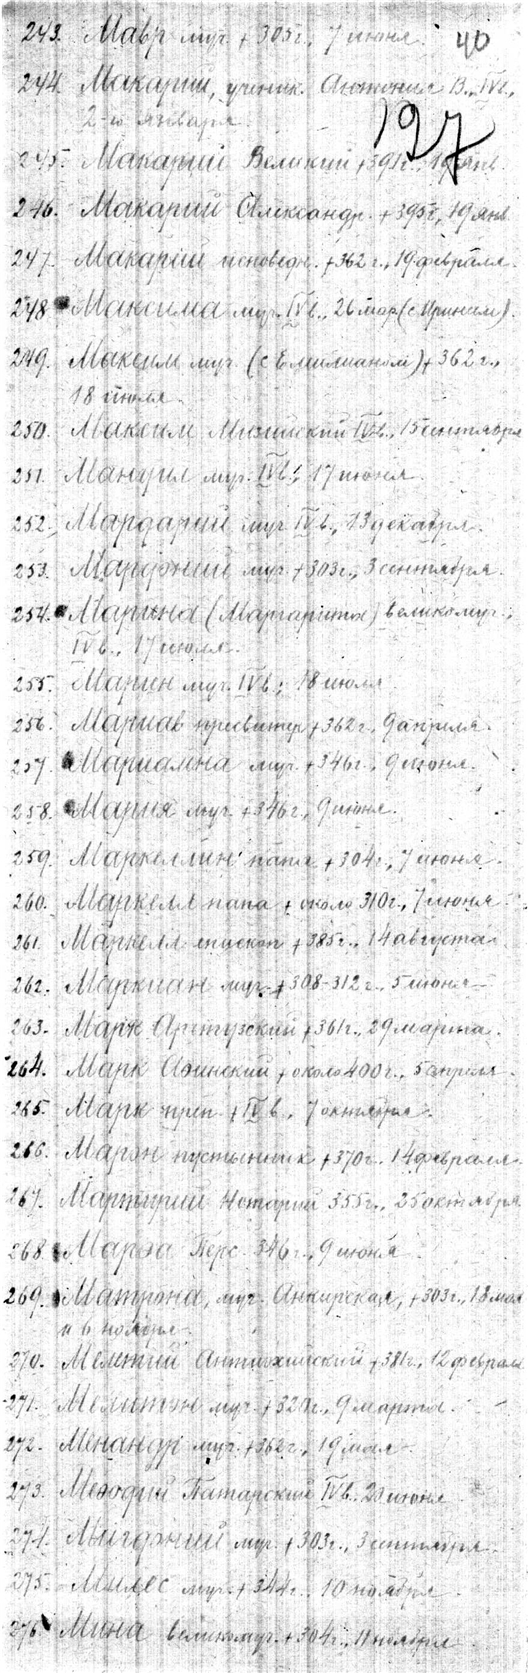 243. Мавр муч. + 305г., 7 июня. 40
244. Макарий, ученик Антония В., IVв.,
2-го января.
197
245. Макарий Великий +391г., 19 янв.
246. Макарий Александр. + 395г., 19 янв.
247. Макарий исповедн. +362 г., 19 февраля.
248 Максима муч. IVв., 26 мар (с Иринеем).
249. Максим муч. (с Емилианом) + 362 г.,
18 июля.
250. Максим Мизийский IVв., 15 сентября
251. Мануил муч. IVв., 17 июня.
252. Мардарий муч. IVв., 13 декабря.
253. Мардоний муч. +303г., 3 сентября.
254. Марина (Маргарита) великомуч.,
IVв., 17 июля.
255. Марин муч. IVв., 18 июля
256. Мариав пресвитер +362 г., 9 апреля.
257. Мариамна муч. +346г., 9 июня.
258. Мария муч. +346г., 9 июня.
259. Маркеллин папа +304г., 7 июня.
260. Маркелл папа + около 310г., 7 июня
261. Маркелл епископ +385г., 14 августа
262. Маркиан муч. +308-312 г., 5 июня
263. Марк Аретузский +361г., 29 марта.
264. Марк Афинский, около 400 г., 5 апреля.
265. Марк преп. + IVв., 7 октября.
266. Марон пустынник +370г., 14 февраля.
267. Мартирий Нотарий 355г., 25 октября
268 Марѳа Перс. 346г., 9 июня.
269. Матрона, муч. Анкирская, +303г., 18 мая
и 6 ноября.
270. Мелетий Антиохийский +381г., 12 февраля
271. Мелитон муч. +320г., 9 марта.
272. Менандр муч. +362г., 19 мая.
273. Меѳодий Патарский IVв. 20 июня
274. Мигдоний муч. +303г., 3 сентября.
275. Милес муч. +344г., 10 ноября.
276 Мина великомуч. +304г., 11 ноября.